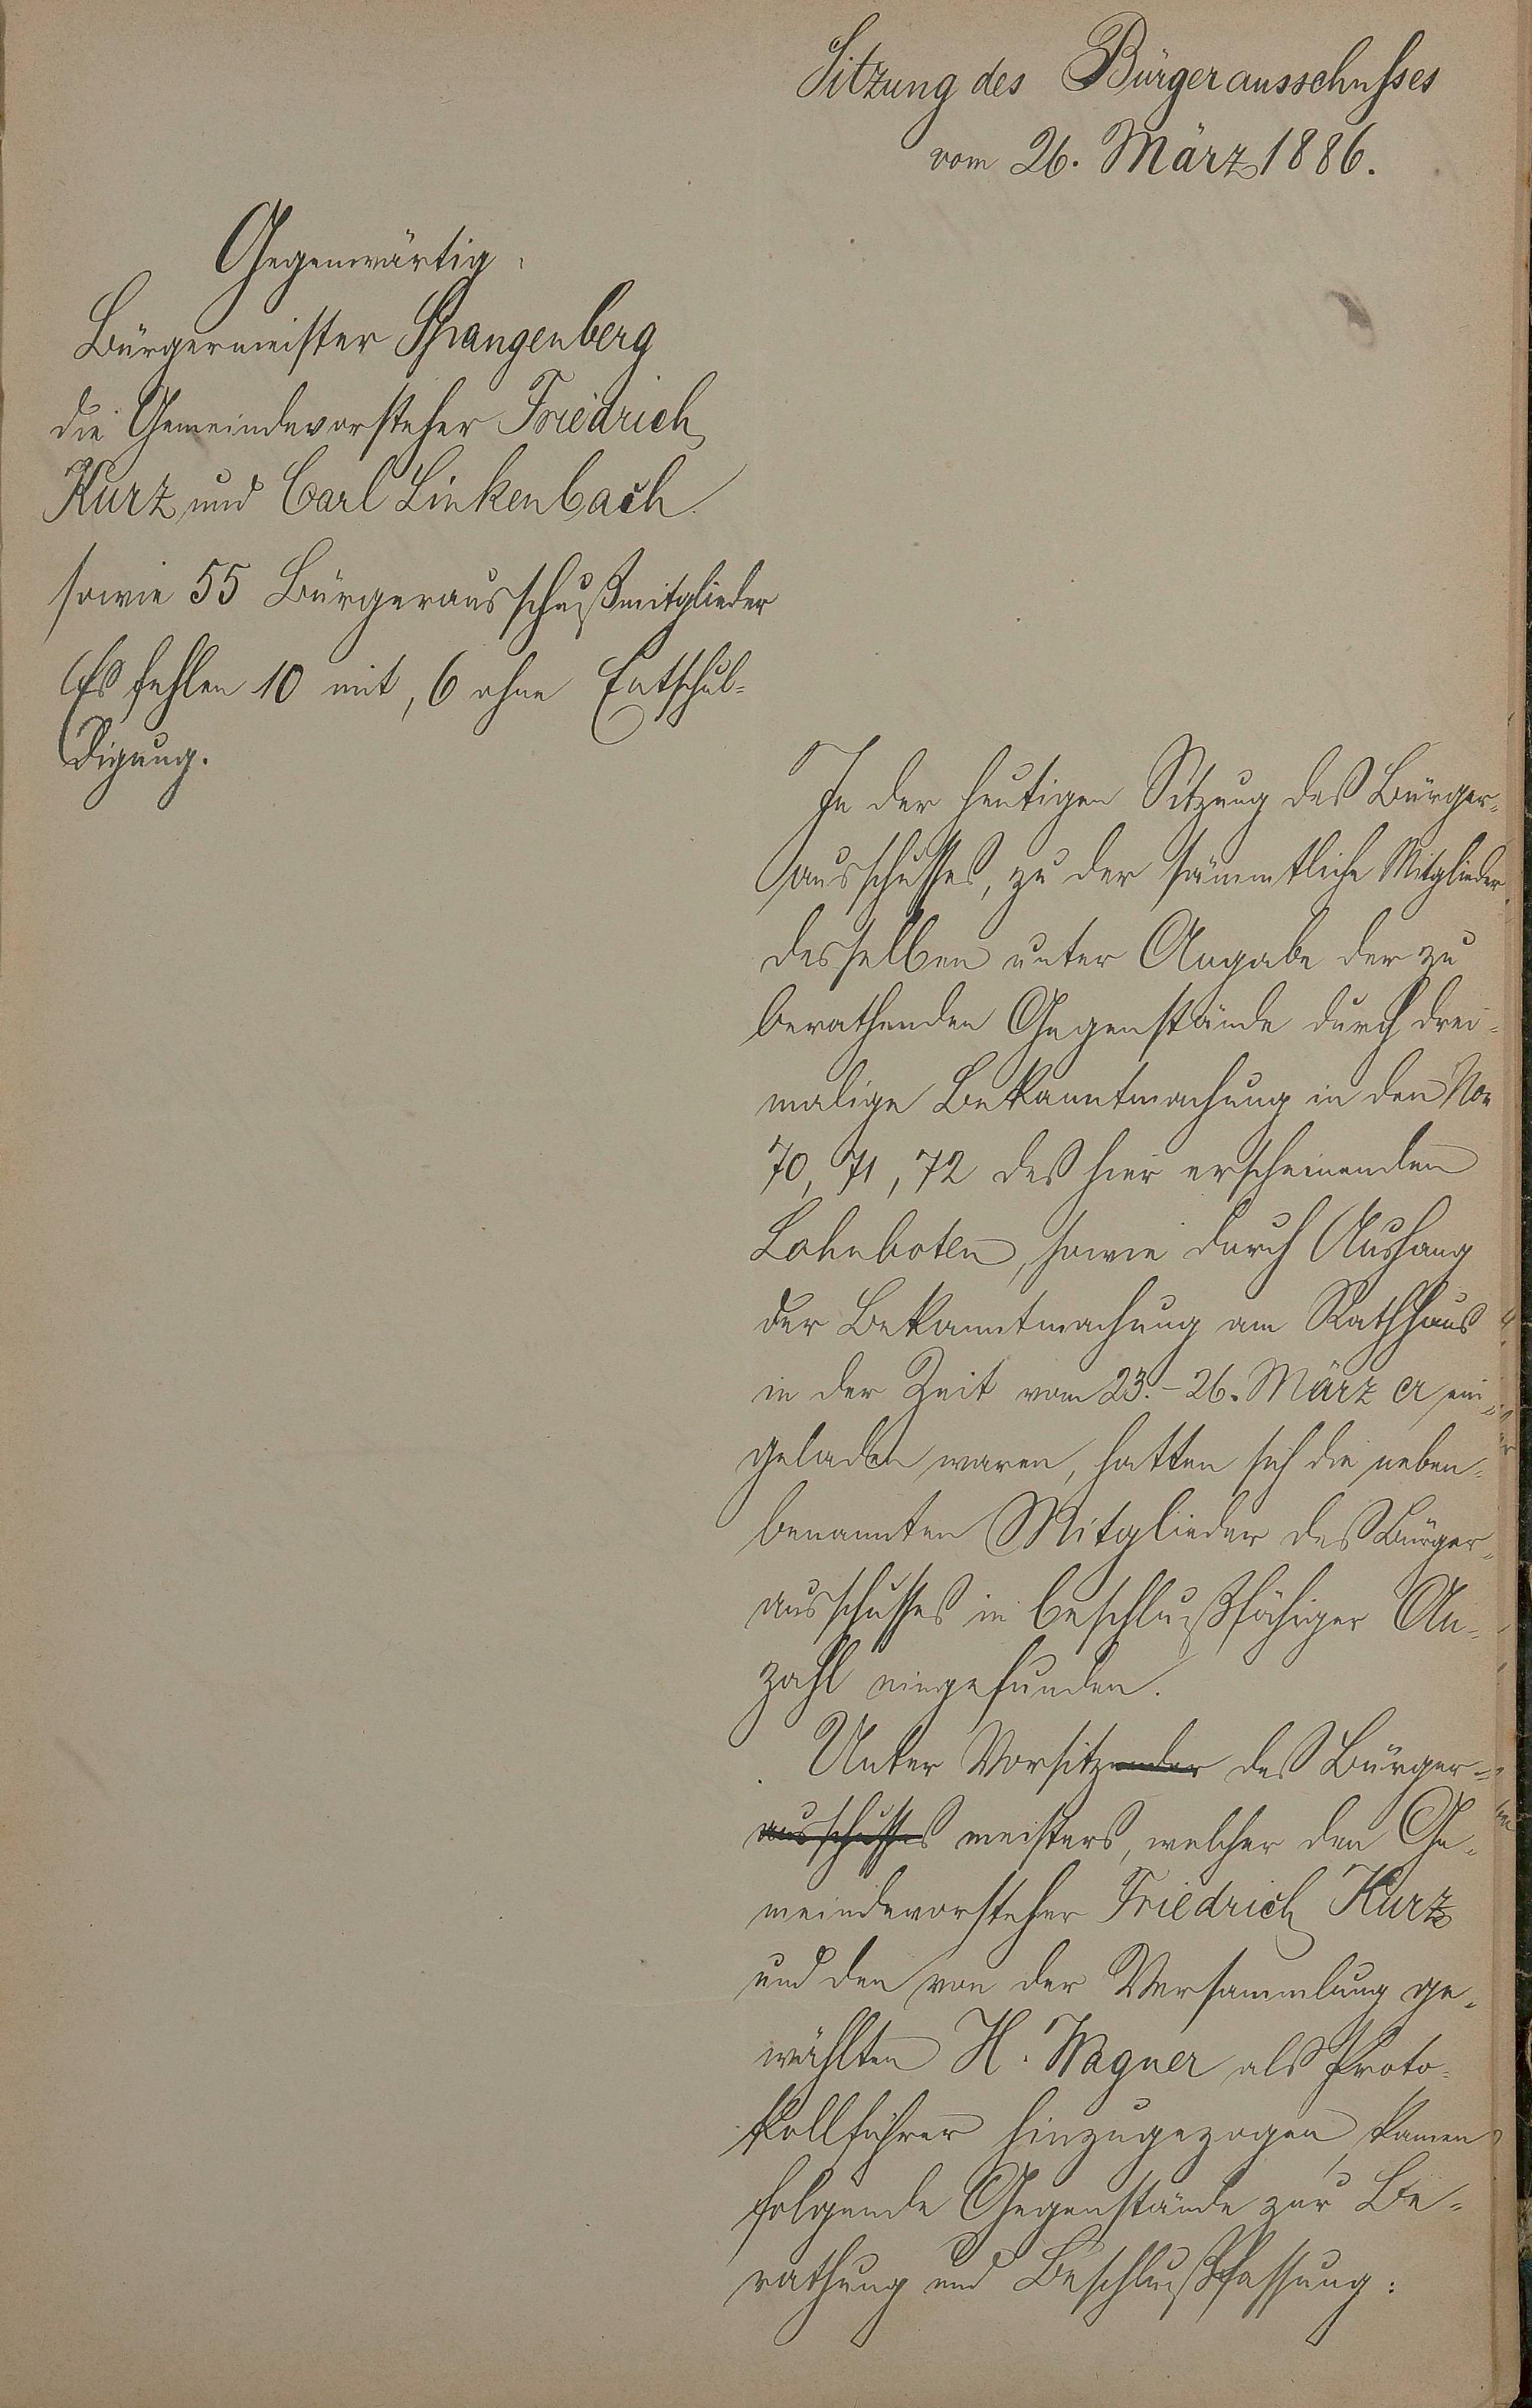 Sitzung des Bürgerausschusses
vom 26. März 1886.
Gegenwärtig:
Bürgermeister Spangenberg
die Gemeindevorsteher Friedrich
Kurz und Carl Linkenbach.
sowie 55 Bürgerausschußmitglieder
Es fehlen 10 mit, 6 ohne Entschul=
digung.
In der heutigen Sitzung des Bürger=
ausschusses, zu der sämmtliche Mitglieder
desselben unter Angabe der zu
berathenden Gegenstände durch drei=
malige Bekanntmachung in den Nor
70, 71, 72 des hier erscheinenden
Lahnboten, sowie durch Aushang
der Bekanntmachung am Rathhaus
in der Zeit vom 23.-26. März cr ein=
geladen waren, hatten sich die neben=
benannten Mitglieder des Bürger=
ausschusses in beschlußfähiger An=
zahl eingefunden.
Unter Vorsitzender des Bürger=
ausschusses meisters, welcher den Ge=
meindevorsteher Friedrich Kurz
und den von der Versammlung ge=
wählten H. Wagner als Proto=
kollführer hinzugezogen, kamen
folgende Gegenstände zur Be=
rathung und Beschlußfassung: